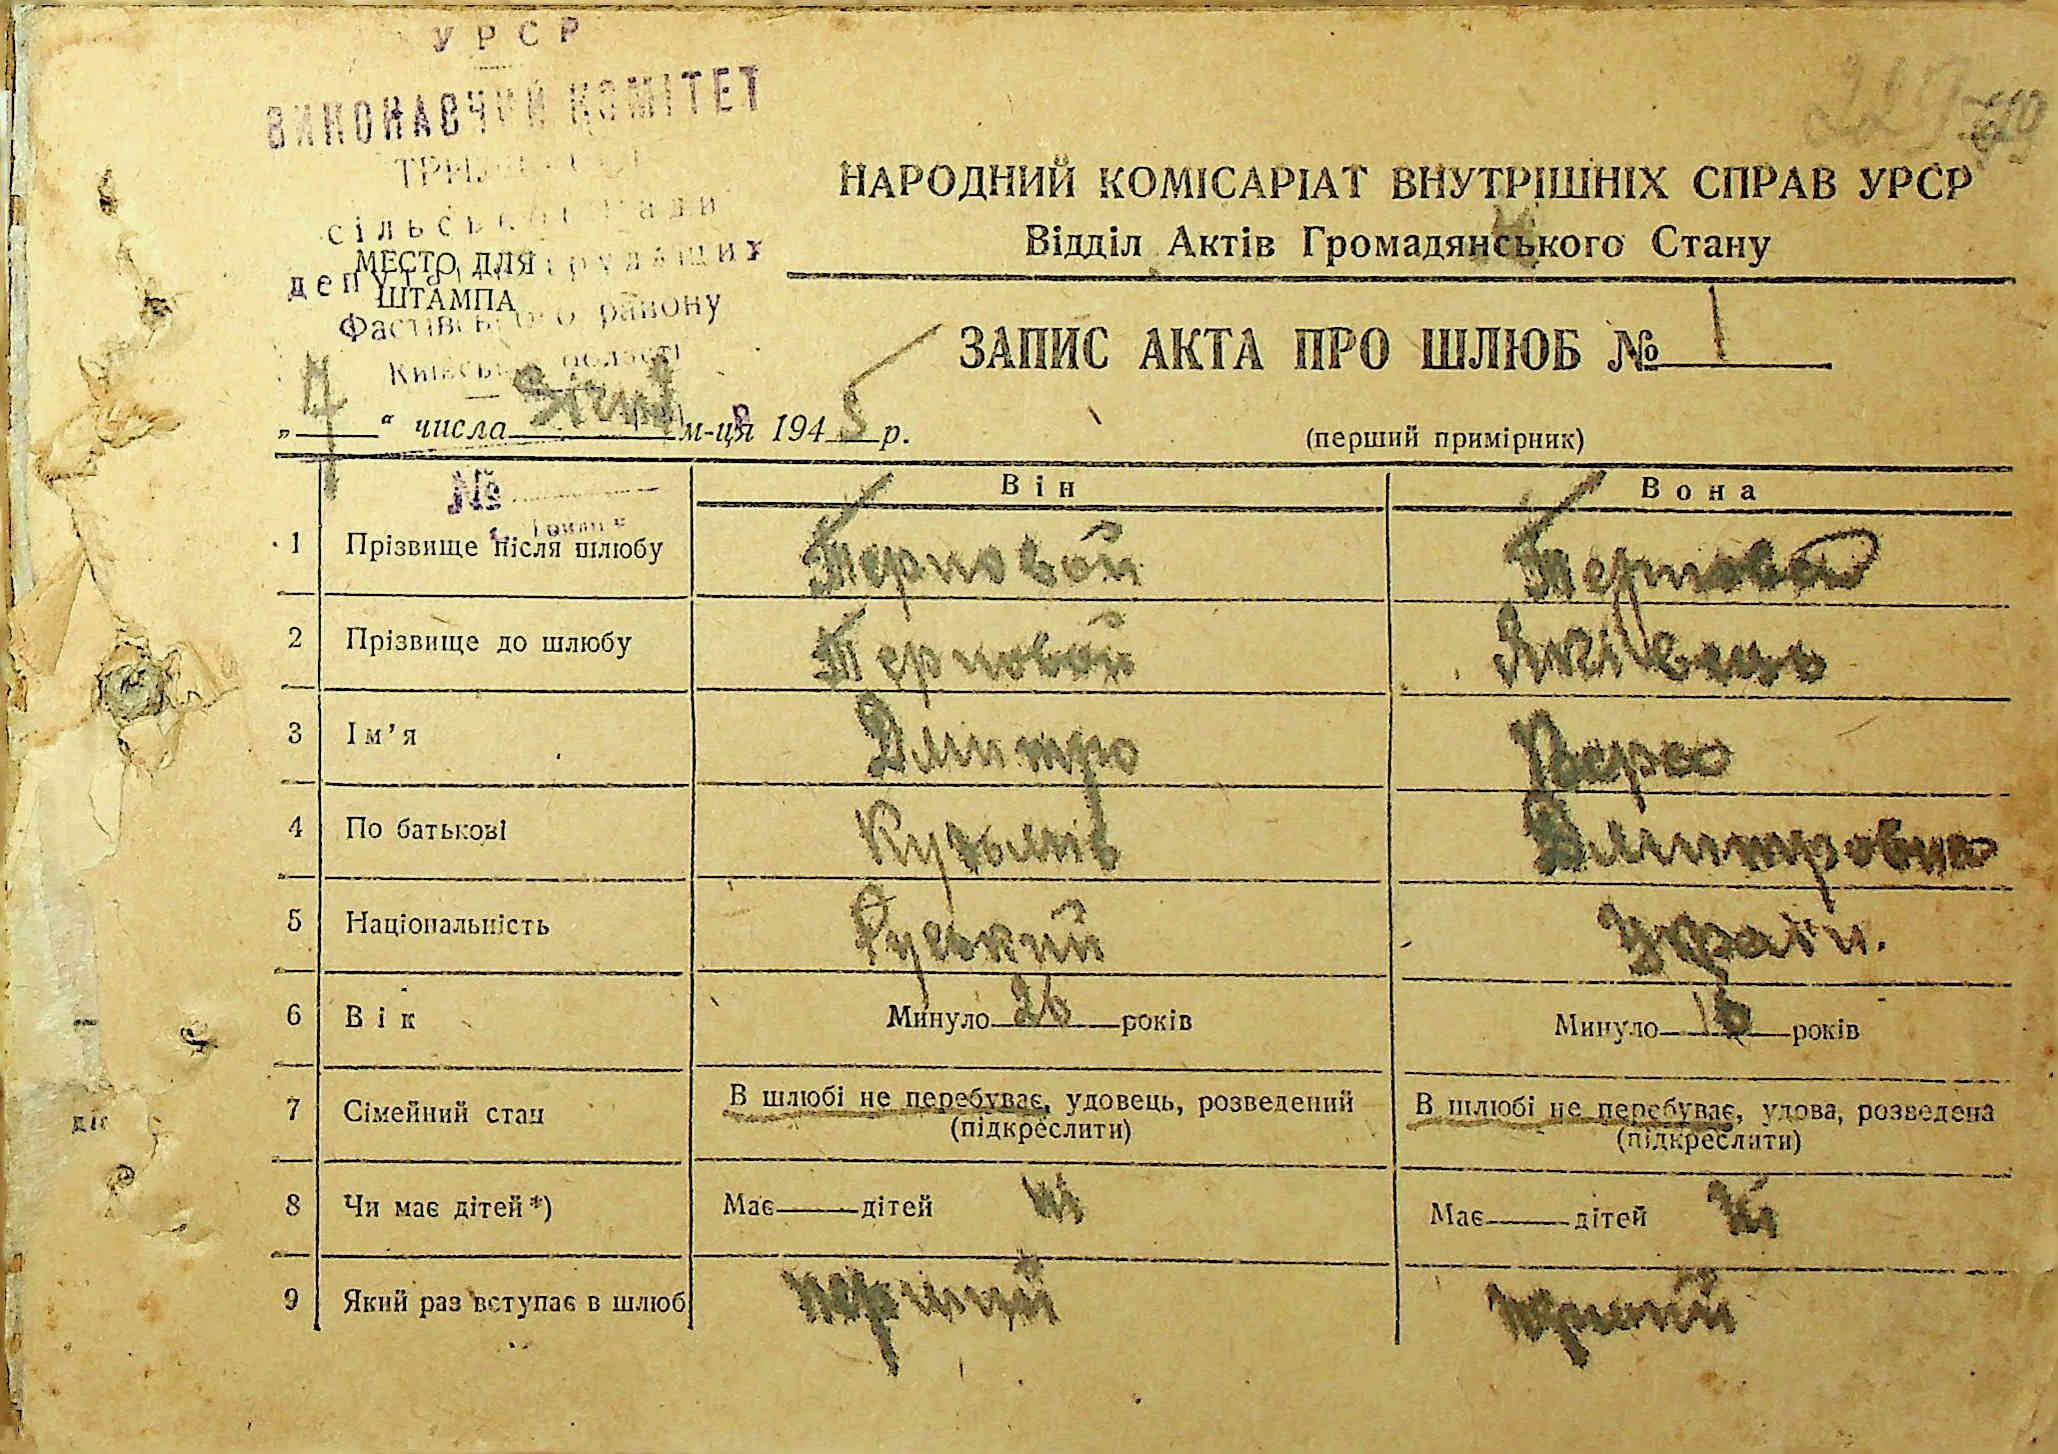 УРСР
ВИКОНАВЧИЙ КОМІТЕТ
сільської ради
МЕСТО ДЛЯ
ШТАМПА
депутатів трудящих
Фастівського району
Київської області
НАРОДНИЙ КОМІСАРІАТ ВНУТРІШНІХ СПРАВ УРСР
Відділ Актів Громадянського Стану
ЗАПИС АКТА ПРО ШЛЮБ № 1
„ 4 “ числа Січня м-ця 1945 р.
(перший примірник)
№
Він
Вона
1 Прізвище після шлюбу Терновой Тернова
2 Прізвище до шлюбу Терновой Яківець
3 Ім’я Дмитро Вера
4 По батькові Кузьміч Дмитровна
5 Національність Руський Україн.
6 Вік Минуло 26 років Минуло років
7 Сімейний стан В шлюбі не перебуває, удовець, розведений В шлюбі не перебуває, удова, розведена
(підкреслити) (підкреслити)
8 Чи має дітей*) Має дітей ні Має дітей ні
9 Який раз вступає в шлюб перший перший